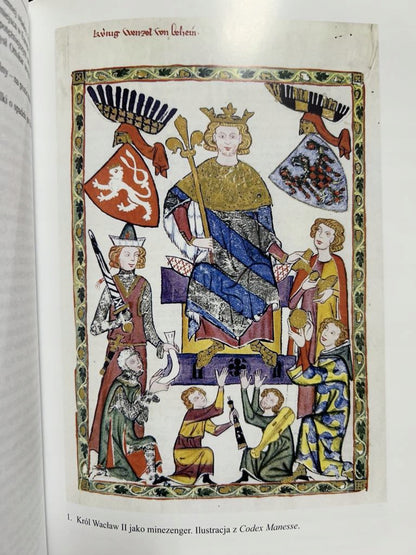 kv̂nig wenzel von behein.
1. Król Wacław II jako minezenger. Ilustracja z Codex Manesse.